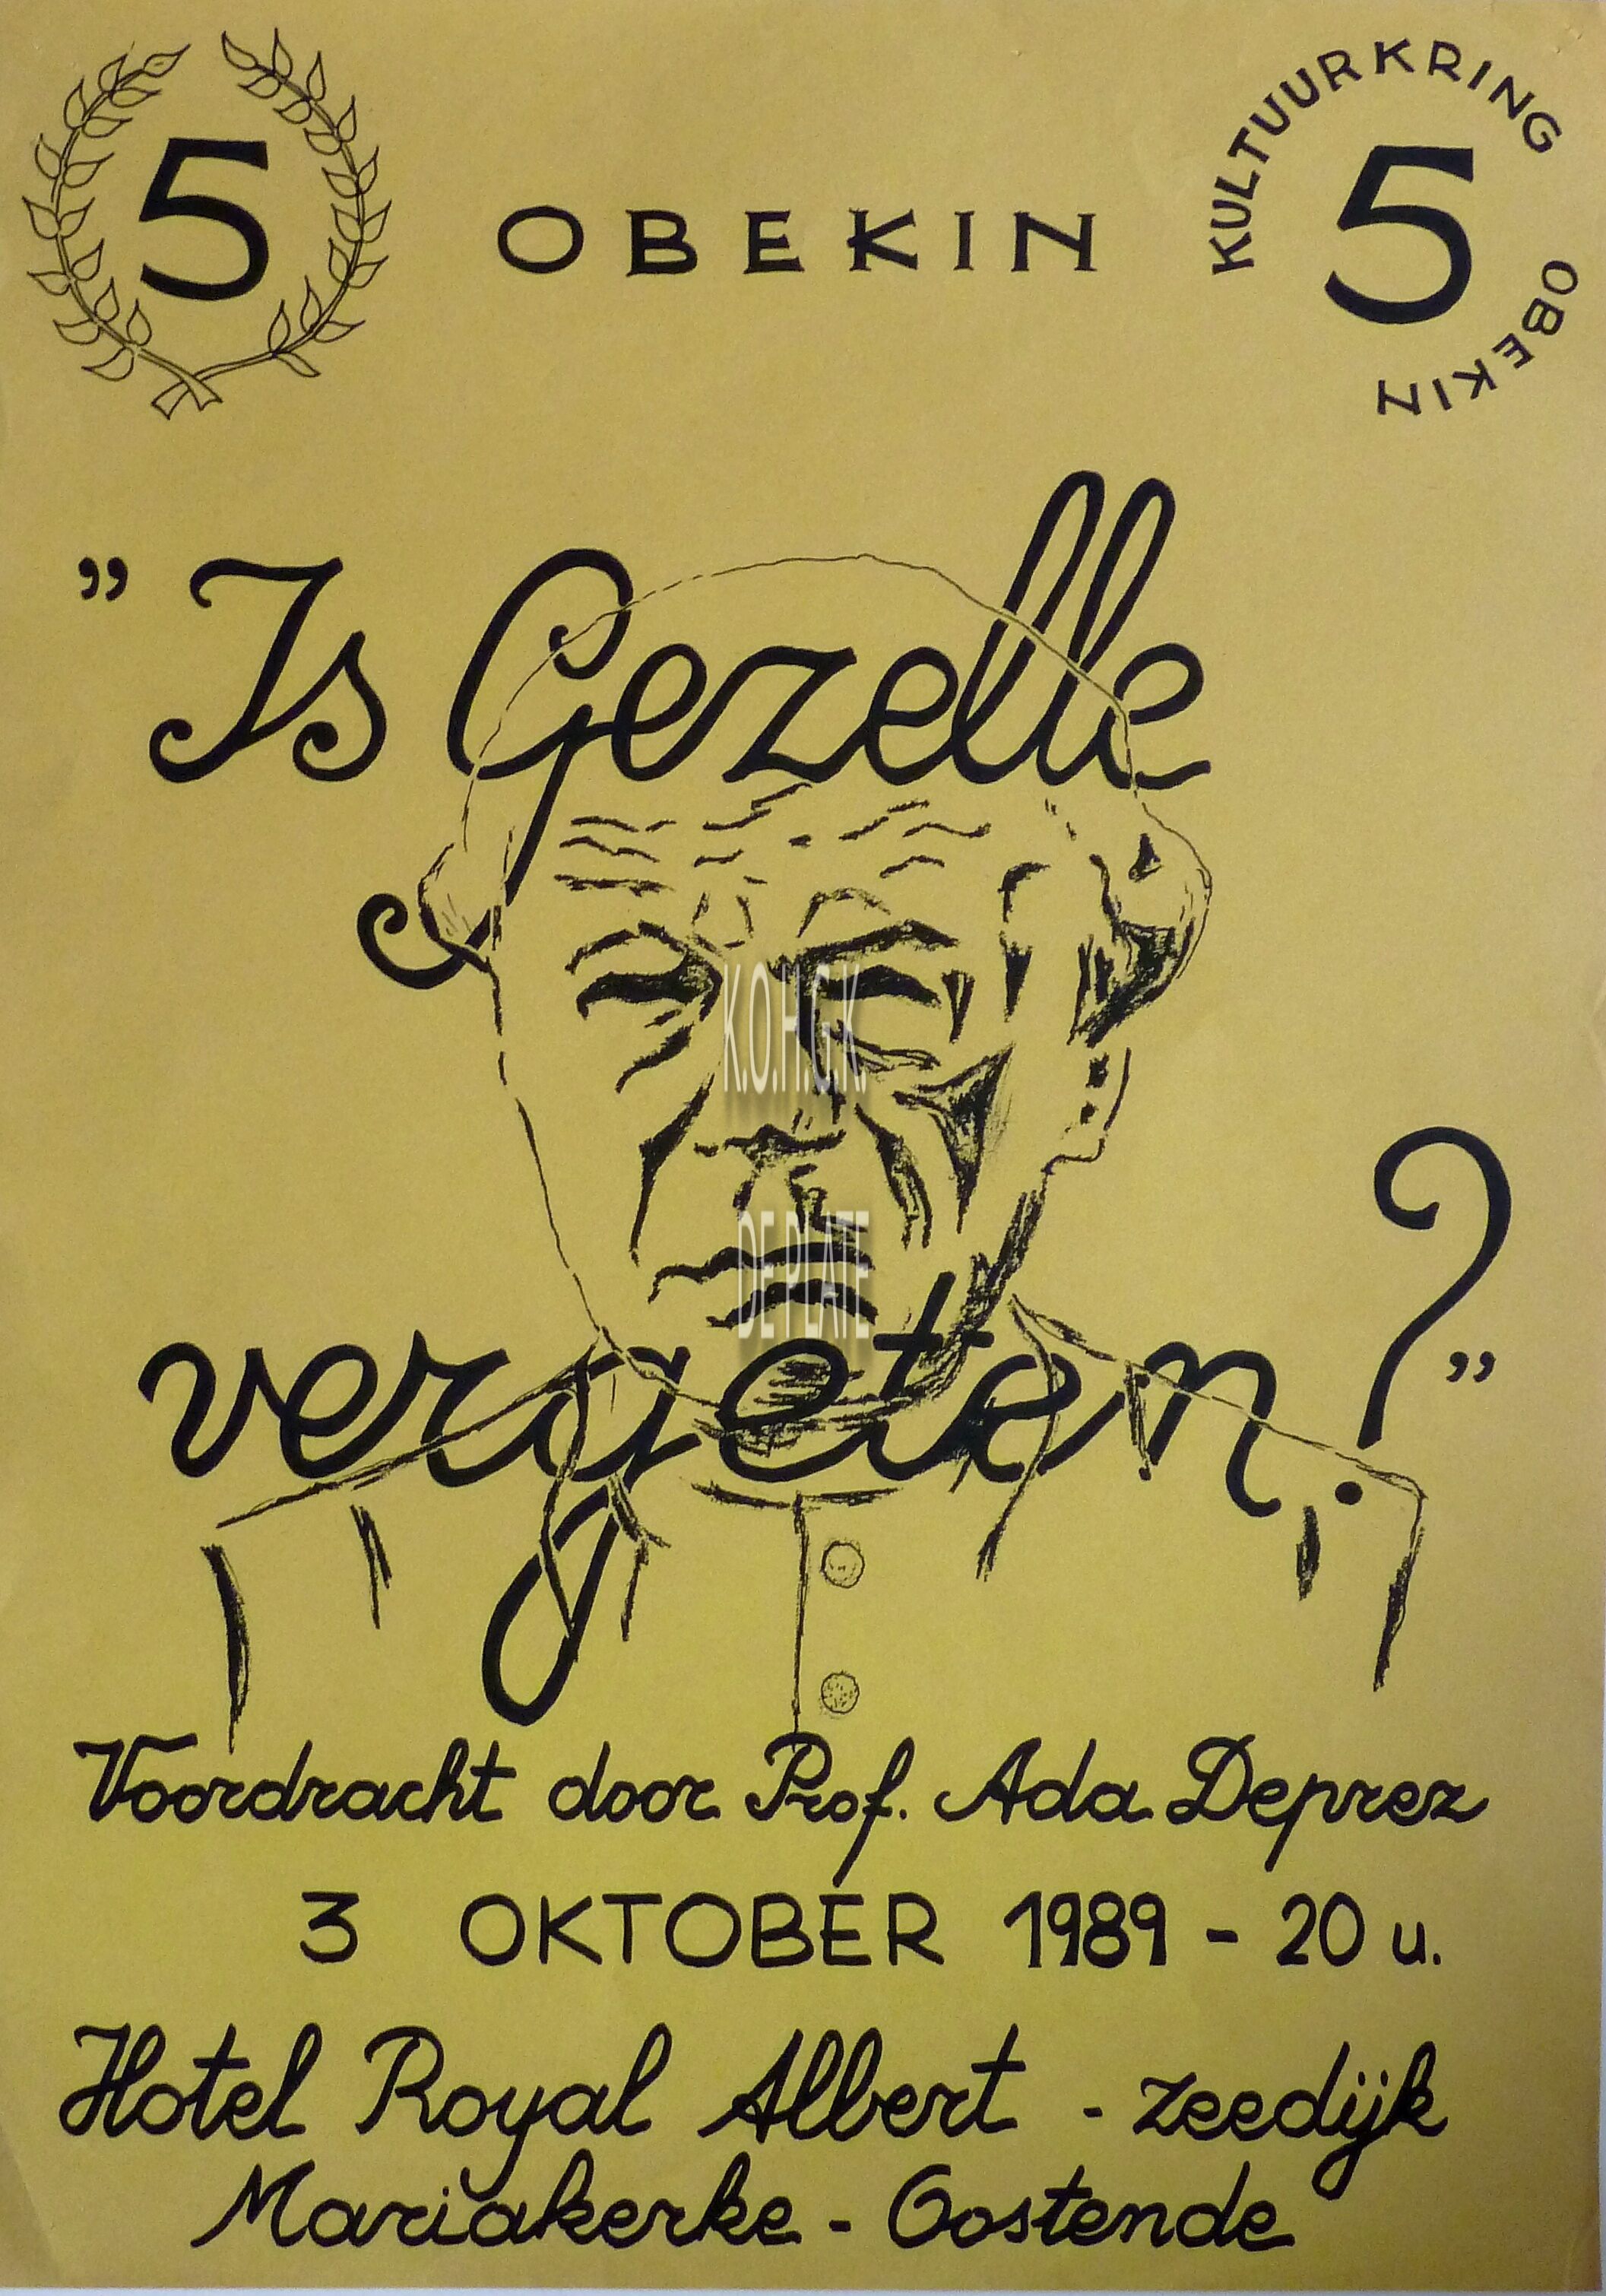 5
OBEKIN
KULTUURKRING OBEKIN
5
” Is Gezelle
vergeten? ”
K.O.H.G.K.
DE PLATE
Voordracht door Prof. Ada Deprez
3 OKTOBER 1989 - 20 u.
Hotel Royal Albert - zeedijk
Mariakerke - Oostende